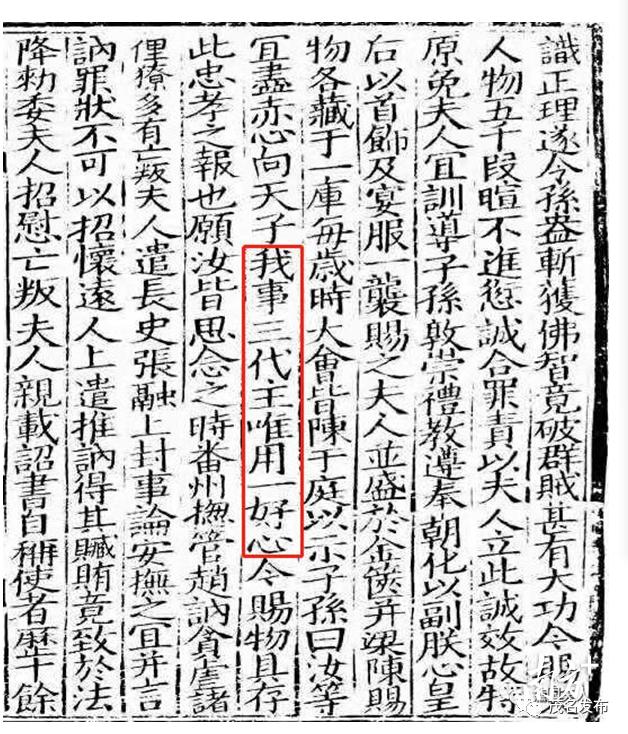 識正理遂令孫盎斬獲佛智竟破群賊甚有大功今賜
人物五千段暄不進愆誠合罪責以夫人立此誠效故特
原免夫人宜訓導子孫敦崇禮教遵奉朝化以副朕心皇
后以首飾及宴服一襲賜之夫人並盛於金篋并梁陳賜
物各藏于一庫每歲時大會皆陳于庭以示子孫曰汝等
宜盡赤心向天子我事三代主唯用一好心今賜物具存
此忠孝之報也願汝皆思念之時番州揔管趙訥貪虐諸
俚獠多有亡叛夫人遣長史張融上封事論安撫之宜并言
訥罪狀不可以招懷遠人上遣推訥得其贓賄竟致於法
降勑委夫人招慰亡叛夫人親載詔書自稱使者歷十餘
茂名发布